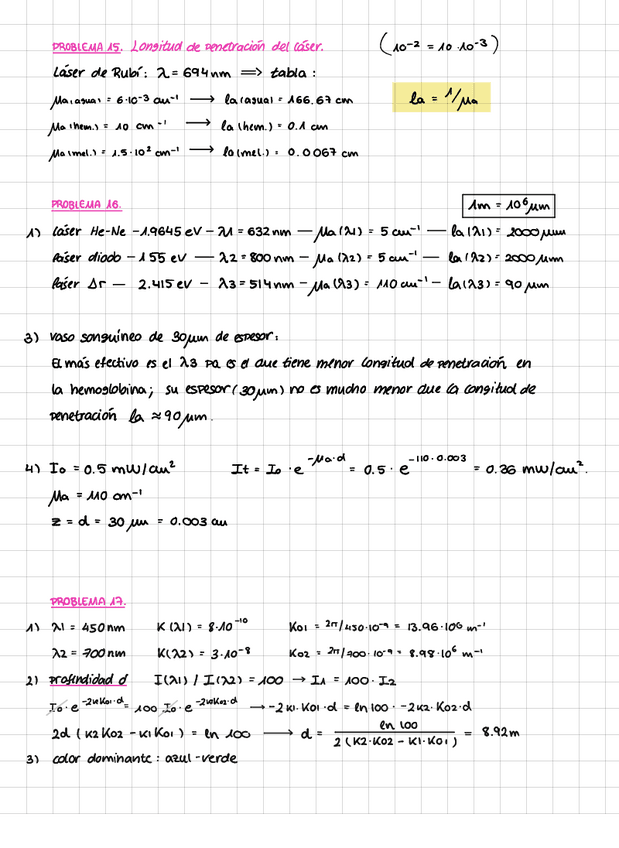 PROBLEMA 15. Longitud de penetración del láser. (10⁻² = 10 · 10⁻³)
Láser de Rubí: λ = 694 nm ⟹ tabla:
μa(agua) = 6·10⁻³ cm⁻¹ → la(agua) = 166.67 cm
la = 1/μa
μa(hem.) = 10 cm⁻¹ → la(hem.) = 0.1 cm
μa(mel.) = 1.5·10² cm⁻¹ → la(mel.) = 0.0067 cm
PROBLEMA 16.
1m = 10⁶ μm
1) láser He-Ne - 1.9645 eV - λ1 = 632 nm — μa(λ1) = 5 cm⁻¹ — la(λ1) = 2000 μm
láser diodo - 1.55 eV — λ2 = 800 nm - μa(λ2) = 5 cm⁻¹ — la(λ2) = 2000 μm
láser Ar — 2.415 eV - λ3 = 514 nm - μa(λ3) = 110 cm⁻¹ - la(λ3) = 90 μm
3) vaso sanguíneo de 30 μm de espesor:
El más efectivo es el λ3 pq es el que tiene menor longitud de penetración en
la hemoglobina; su espesor (30 μm) no es mucho menor que la longitud de
penetración la ≈ 90 μm.
4) I₀ = 0.5 mW/cm² It = I₀ · e^(-μa·d) = 0.5 · e^(-110·0.003) = 0.36 mW/cm².
μa = 110 cm⁻¹
z = d = 30 μm = 0.003 cm
PROBLEMA 17.
1) λ1 = 450 nm K(λ1) = 8·10⁻¹⁰ K01 = 2π/450·10⁻⁹ = 13.96·10⁶ m⁻¹
λ2 = 700 nm K(λ2) = 3·10⁻⁸ K02 = 2π/700·10⁻⁹ = 8.98·10⁶ m⁻¹
2) profundidad d I(λ1) / I(λ2) = 100 → I1 = 100 · I2
I₀ · e^(-2K1K01·d) = 100 I₀ · e^(-2K2K02·d) → -2K1·K01·d = ln 100 · -2K2·K02·d
2d (K2K02 - K1K01) = ln 100 → d = ln 100 / 2(K2·K02 - K1·K01) = 8.92 m
3) color dominante: azul-verde